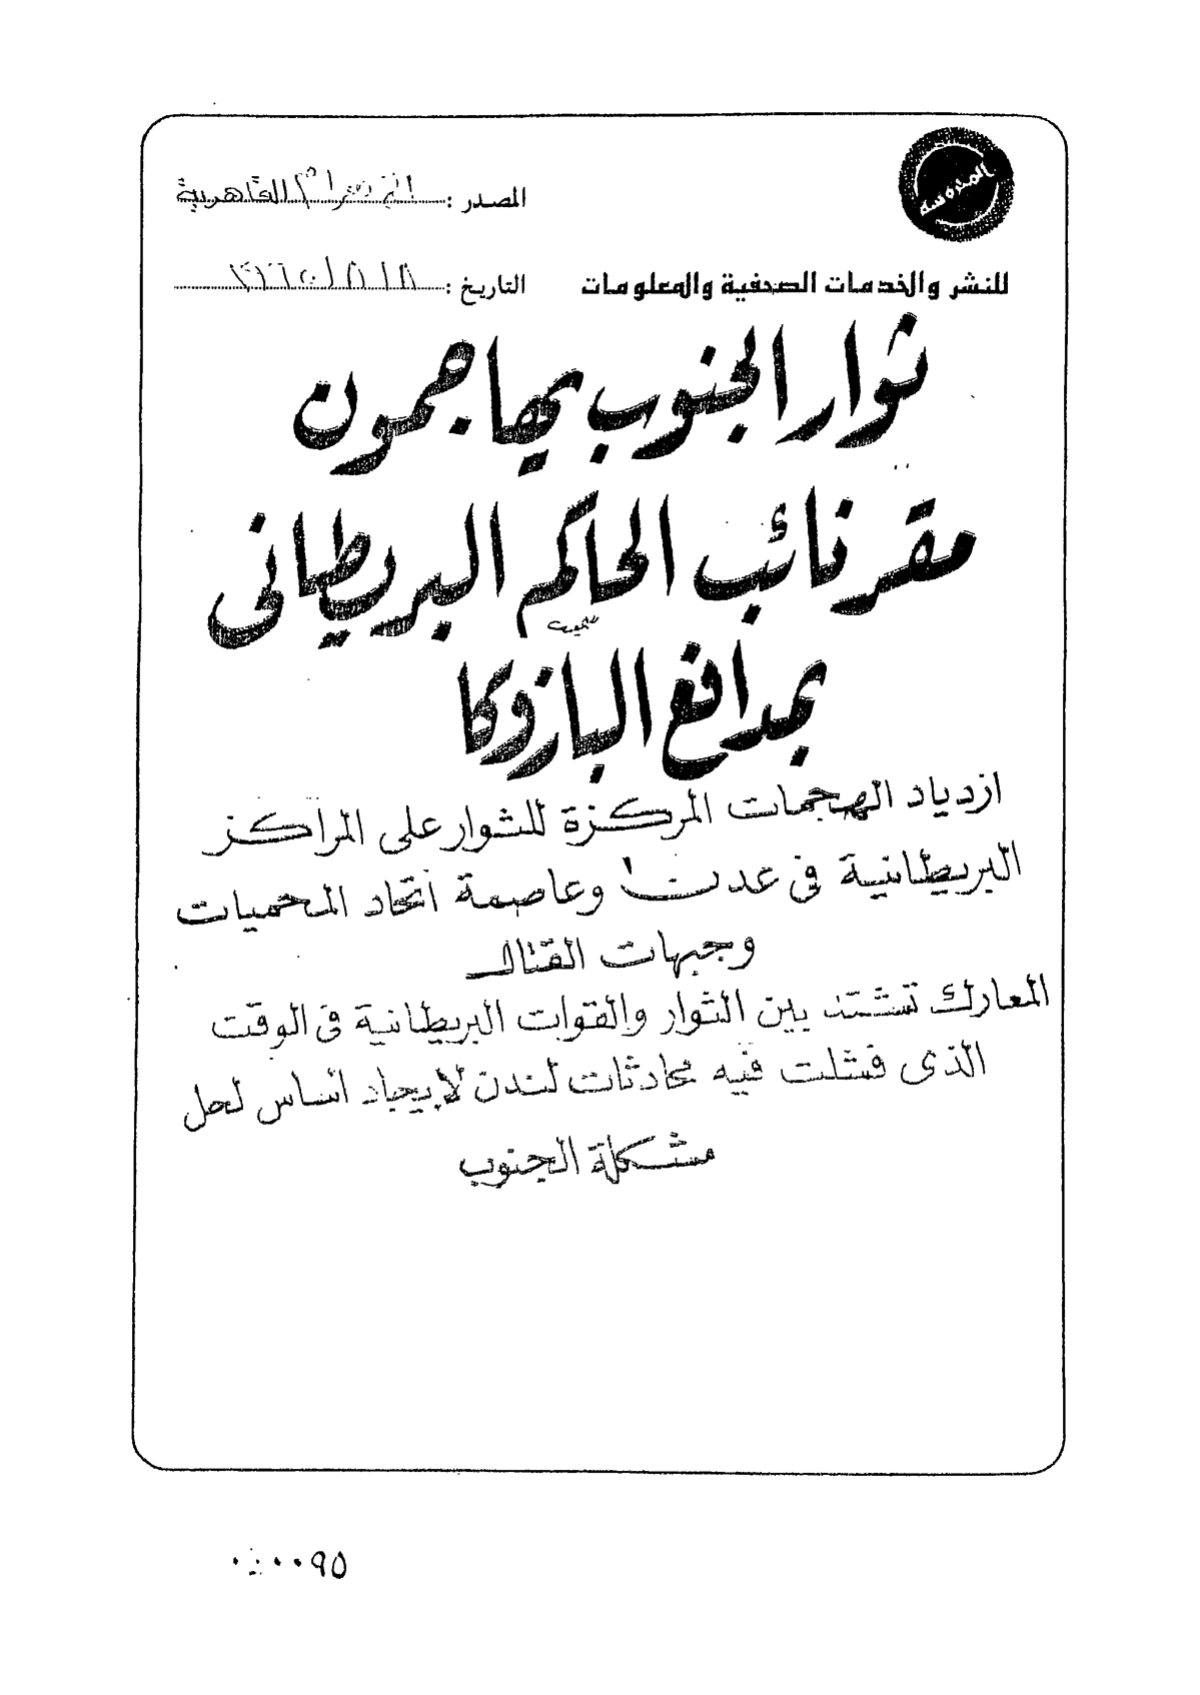 المحروسة
المصدر : الأهرام القاهرية
للنشر والخدمات الصحفية والمعلومات
التاريخ :
ثوار الجنوب يهاجمون
مقر نائب الحاكم البريطانى
بمدافع البازوكا
ازدياد الهجمات المركزة للثوار على المراكز
البريطانية فى عدن وعاصمة اتحاد المحميات
وجبهات القتال
المعارك تشتد بين الثوار والقوات البريطانية فى الوقت
الذى فشلت فيه محادثات لندن لايجاد اساس لحل
مشكلة الجنوب